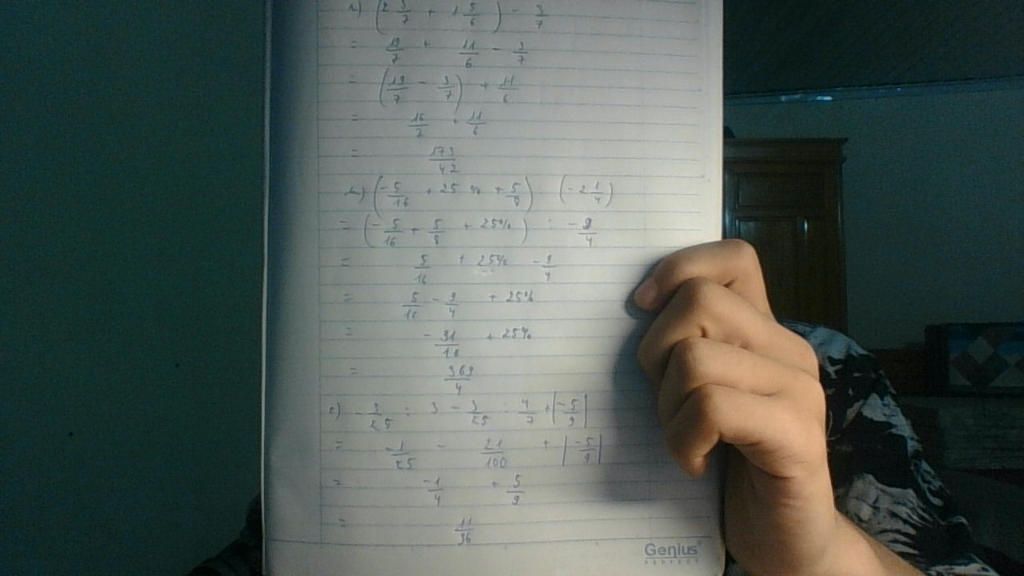 a) (2 3/7 + 1 5/6) - 3/7
= 19/7 + 11/6 - 3/7
= (19/7 - 3/7) + 11/6
= 16/7 + 11/6
= 173/42
b) (-5/16 + 25 % + 5/8) : (-2 1/4)
= (-5/16 + 5/8 + 25%) : -9/4
= 5/16 + 25% - 9/4
= 5/16 - 9/4 + 25%
= -31/16 + 25%
= 369/4
c) -3/25 : 3 - 3/25 : 4/7 + |-5/9|
= -1/25 - 21/100 + |-5/9|
= -1/4 + 5/9
= 11/36
Genius